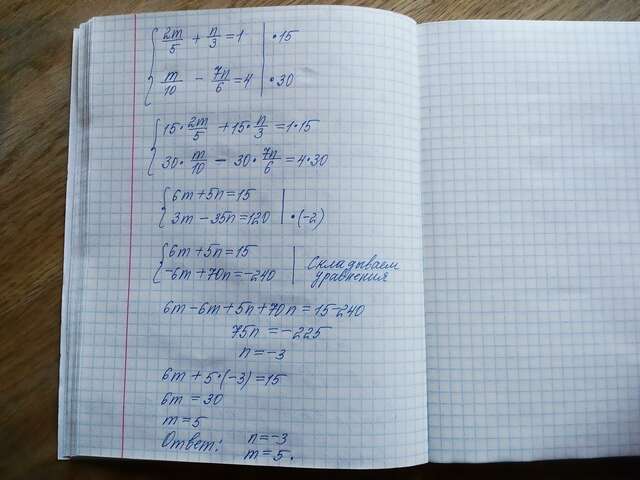 2m/5 + n/3 = 1 | •15
m/10 - 7n/6 = 4 | •30
15•2m/5 + 15•n/3 = 1•15
30•m/10 - 30•7n/6 = 4•30
6m+5n=15
3m-35n=120 | •(-2)
6m+5n=15
-6m+70n=-240 | Складываем уравнения
6m-6m+5n+70n=15-240
75n=-225
n=-3
6m+5•(-3)=15
6m=30
m=5
Ответ: n=-3
m=5.